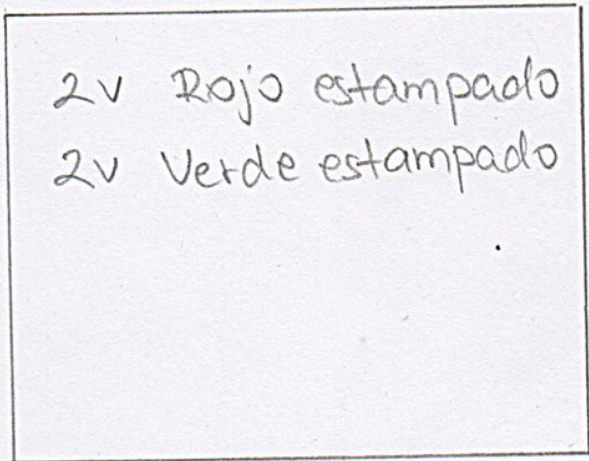 2v Rojo estampado
2v Verde estampado